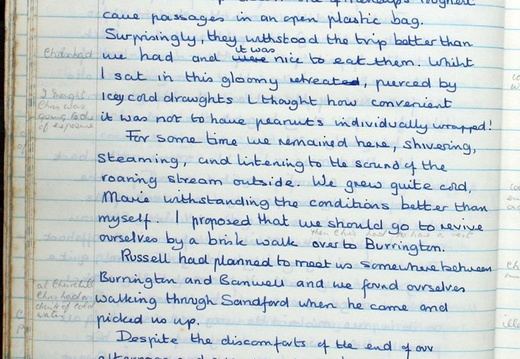 cave passages in an open plastic bag.
Surprisingly, they withstood the trip better than
we had and it was nice to eat them. Whilst
I sat in this gloomy retreated, pierced by
icey cold draughts I thought how convenient
it was not to have peanuts individually wrapped!
For some time we remained here, shivering,
steaming, and listening to the sound of the
roaring stream outside. We grew quite cold,
Marie withstanding the conditions better than
myself. I proposed that we should go to revive
ourselves by a brisk walk over to Burrington.
Russell had planned to meet us somewhere between
Burrington and Banwell and we found ourselves
walking through Sandford when he came and
picked us up.
Despite the discomforts of the end of our
I thought
Chris was
going to die
of exposure
at Churchill
Chris had a
drink of cold
water